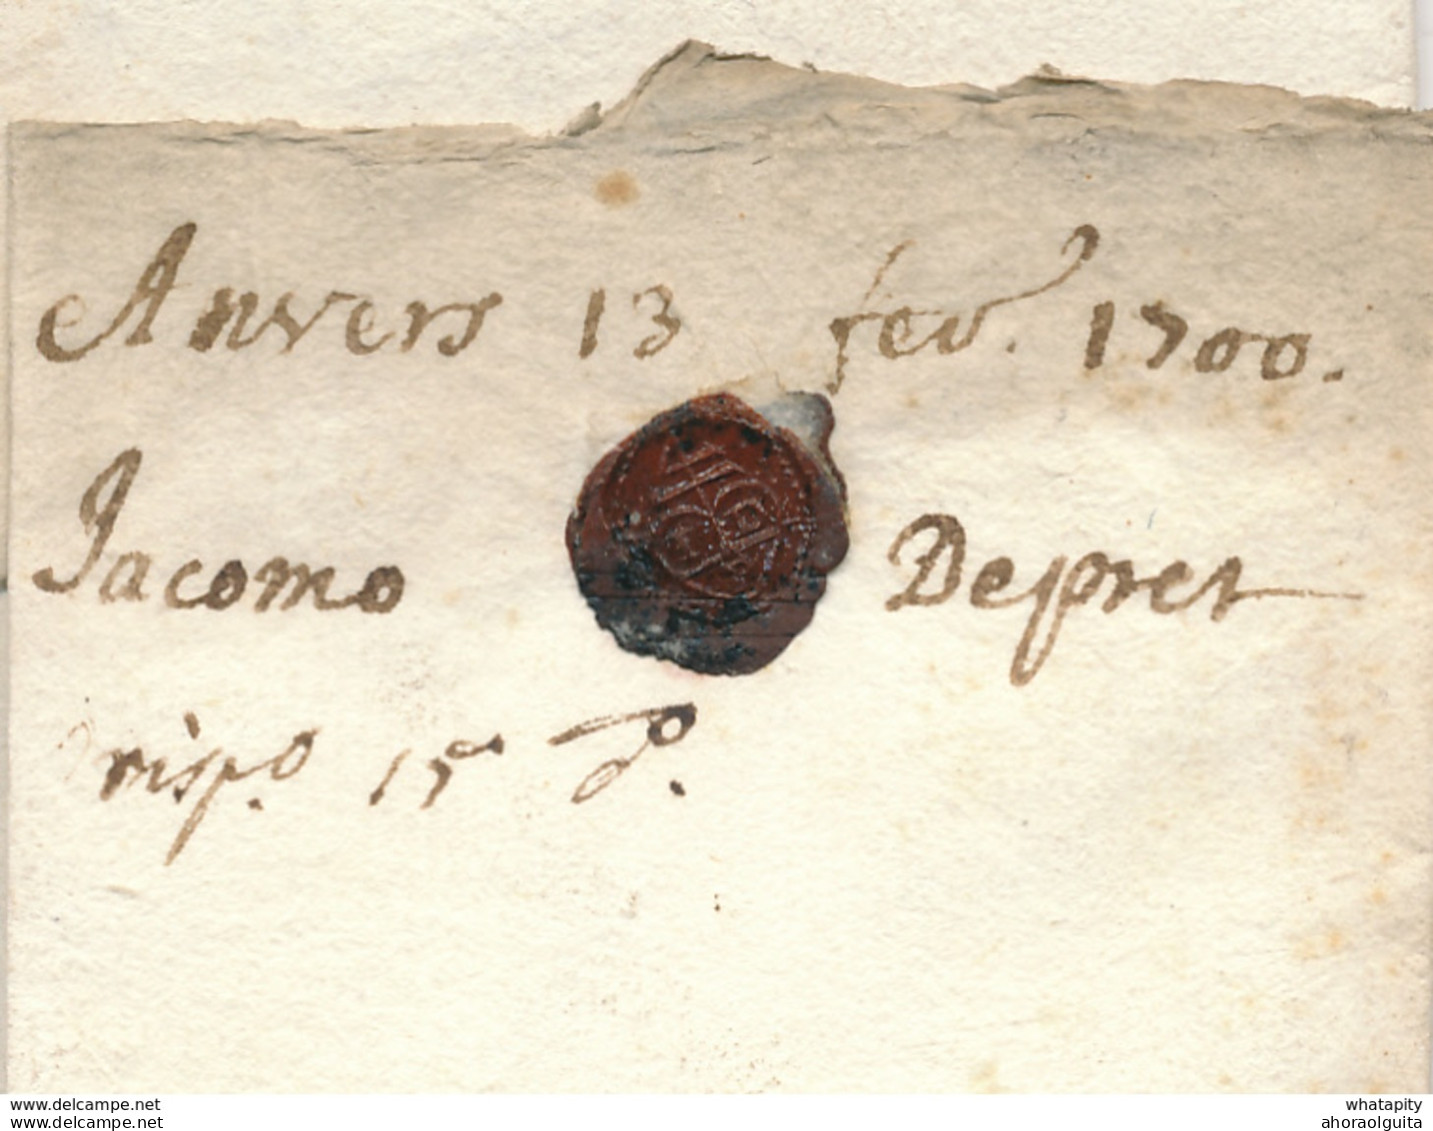 Anvers 13 fev. 1700.
Jacomo Depret
risp.º 15 dº.
www.delcampe.net whatapity
www.delcampe.net ahoraolguita